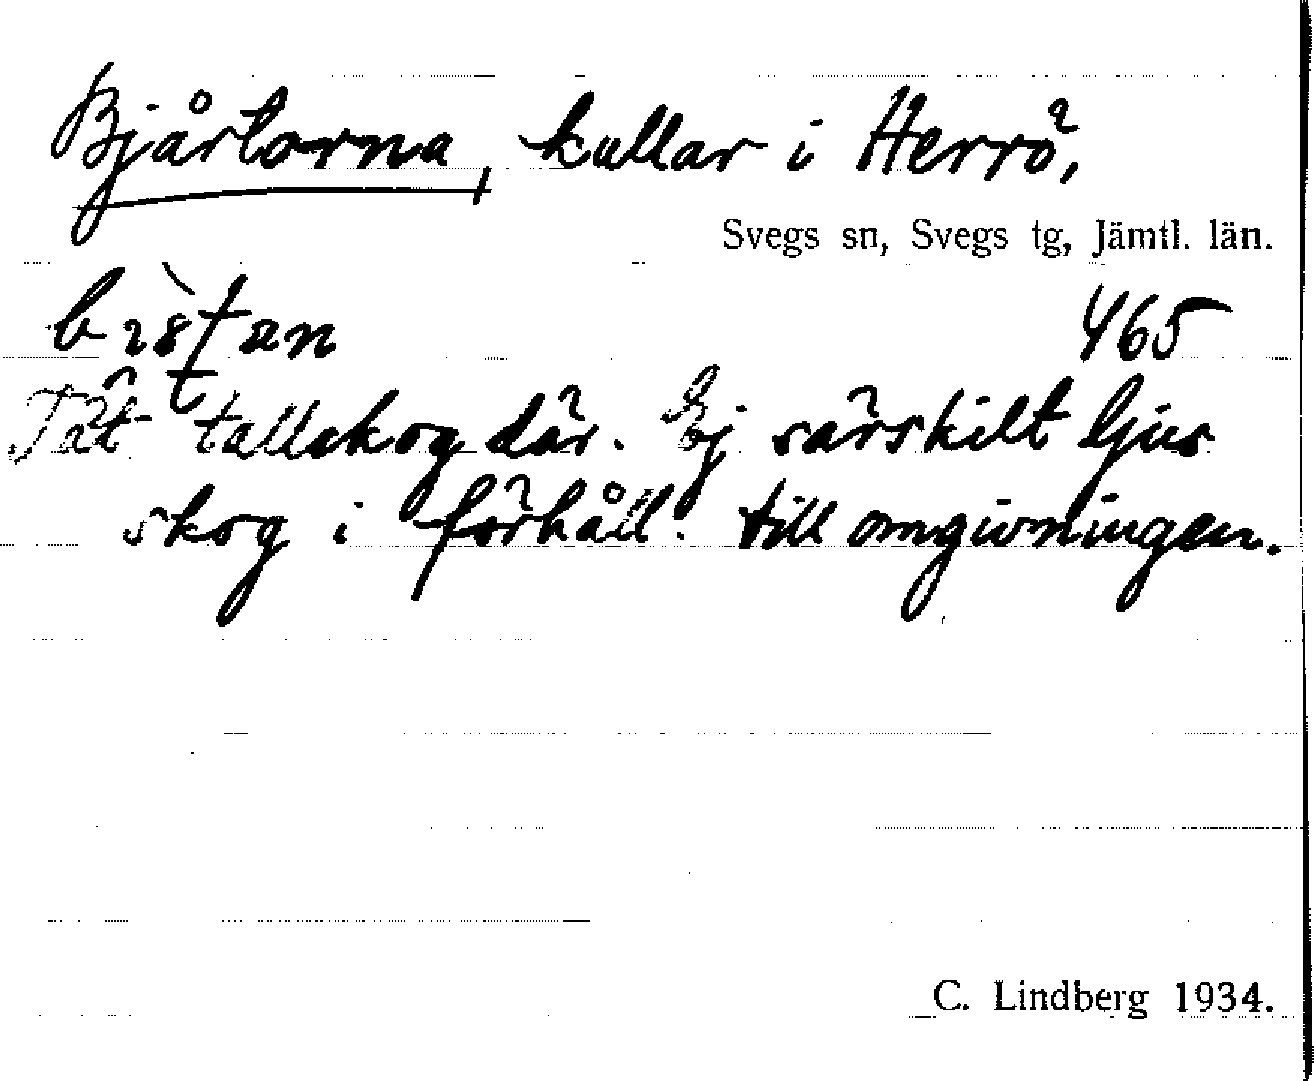 Bjårtorna, kullar i Herrö,
Svegs sn, Svegs tg, Jämtl. län.
465
Tät tallskog där. Ej särskilt ljus
skog i förhåll. till omgivningen.
C. Lindberg 1934.